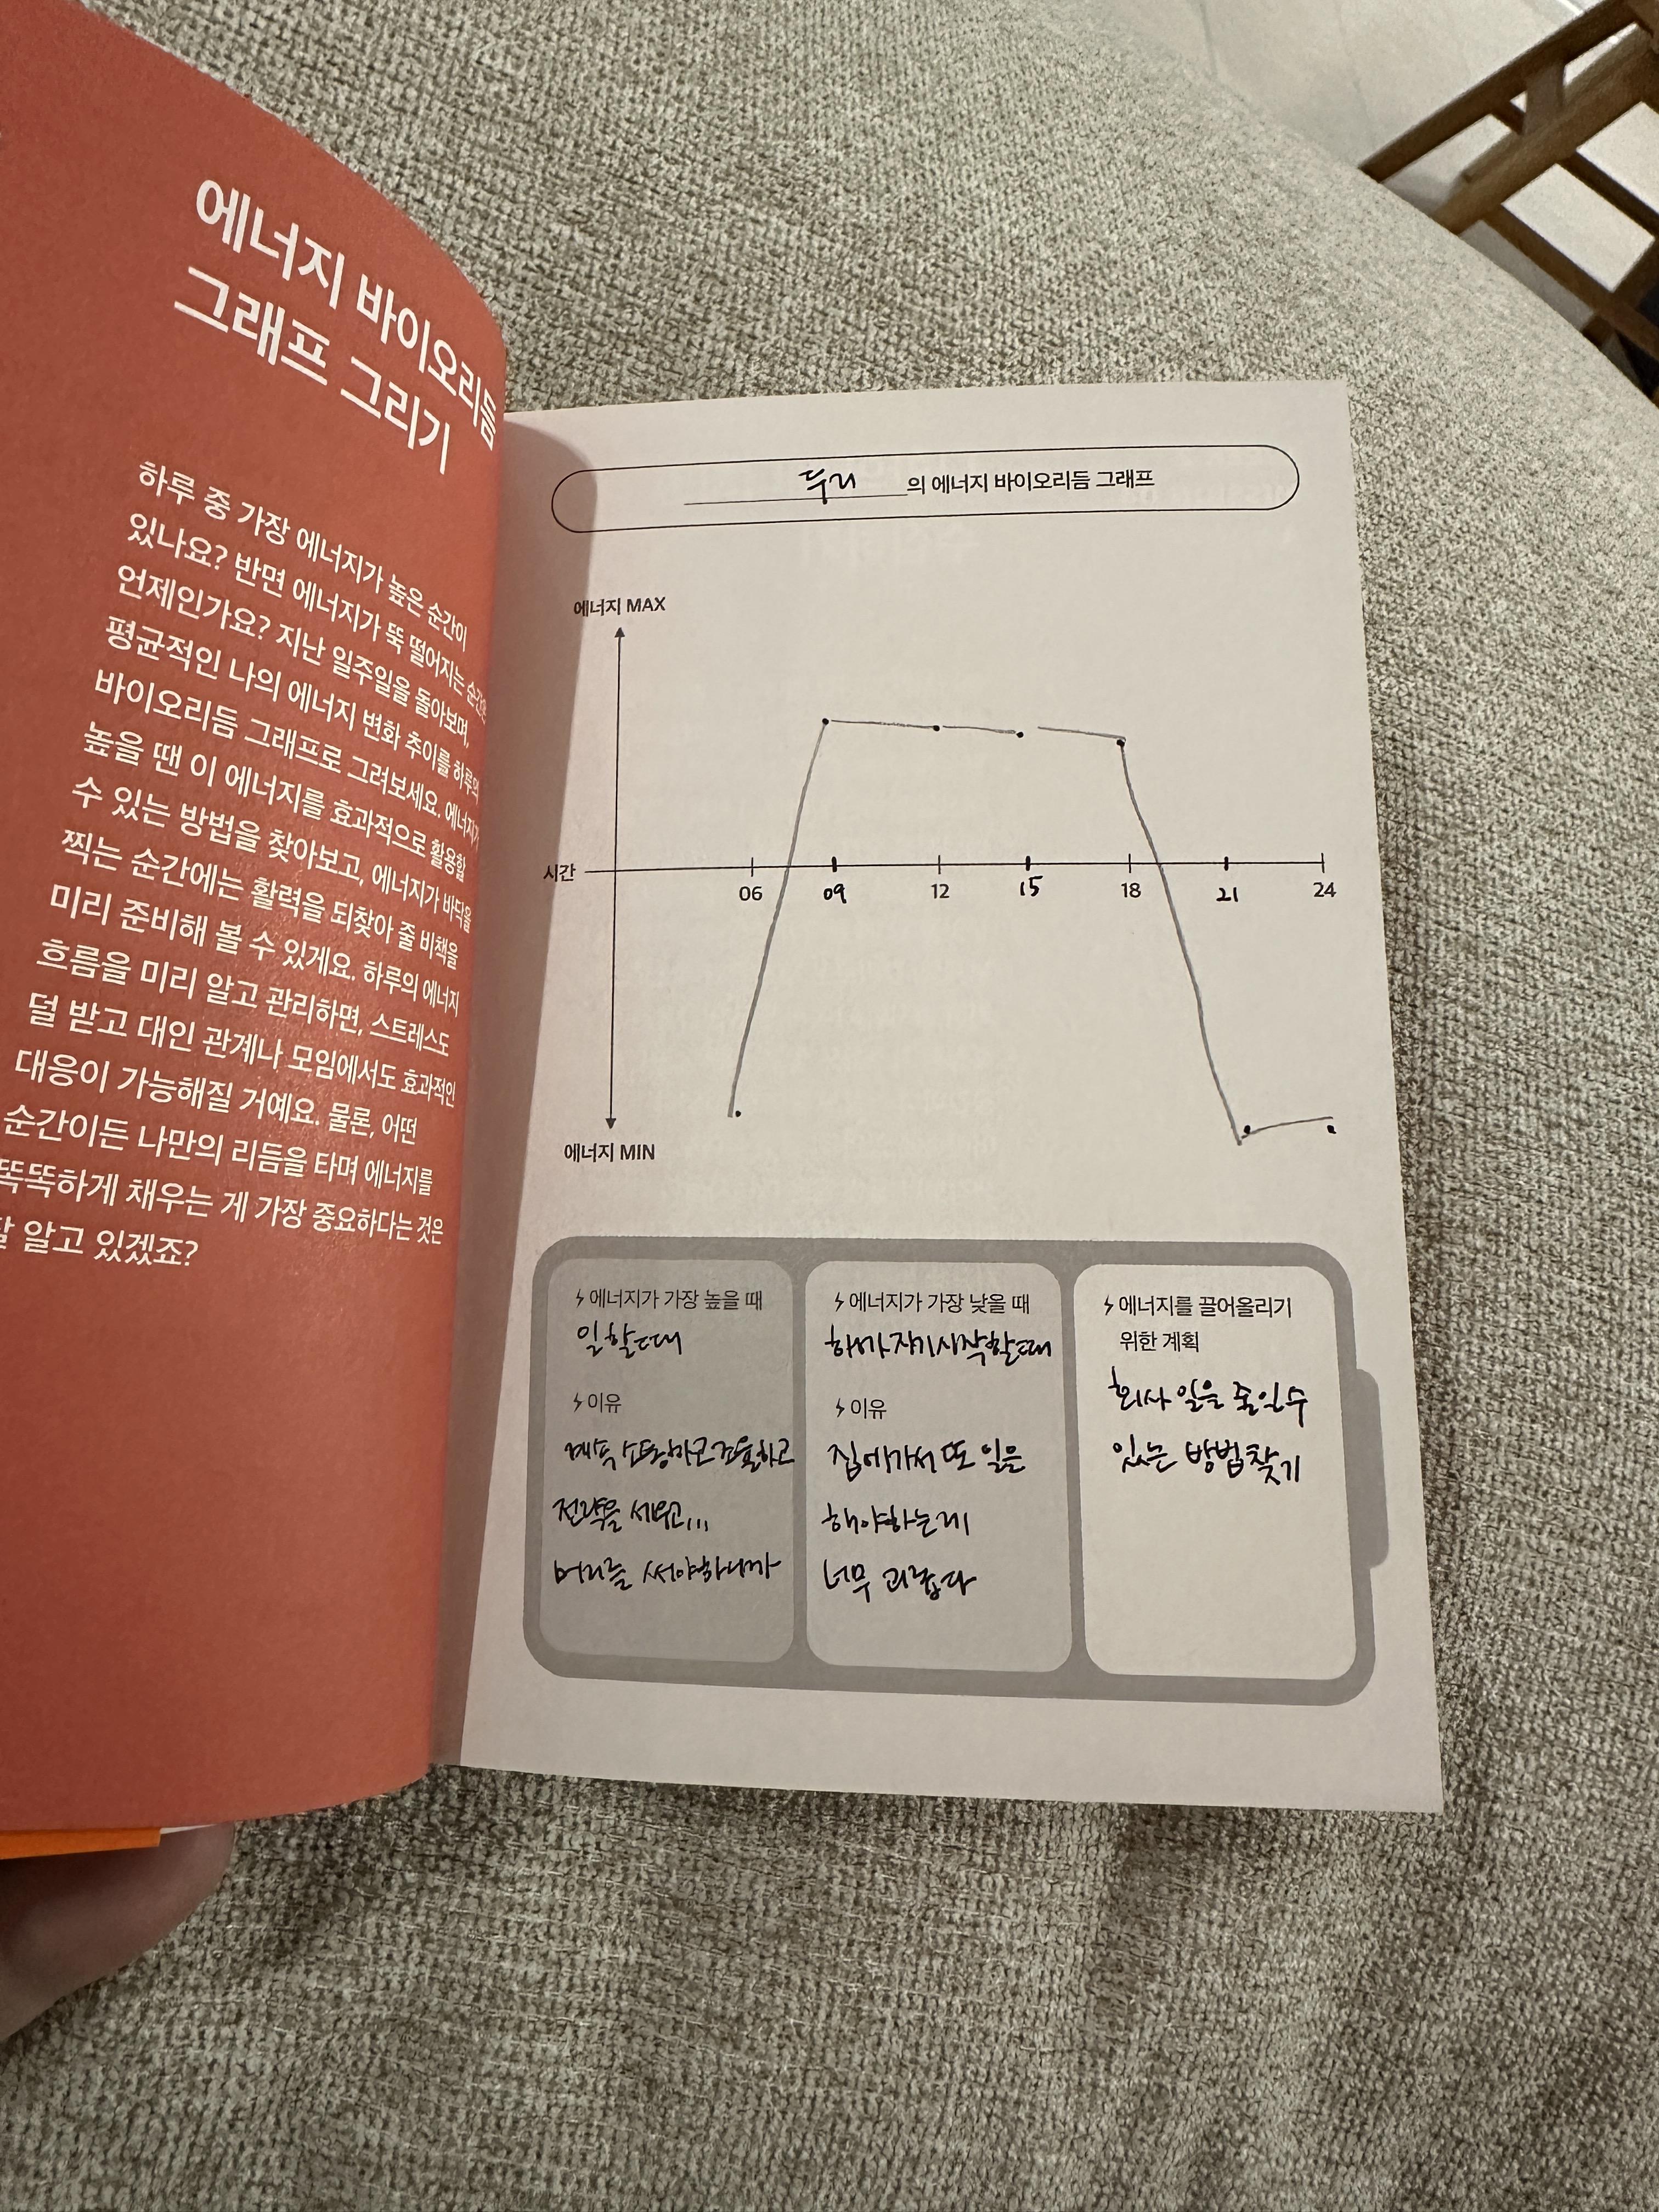 에너지 바이오리듬
그래프 그리기
하루 중 가장 에너지가 높은 순간이
있나요? 반면 에너지가 뚝 떨어지는 순간은
언제인가요? 지난 일주일을 돌아보며,
평균적인 나의 에너지 변화 추이를 하루의
바이오리듬 그래프로 그려보세요. 에너지가
높을 땐 이 에너지를 효과적으로 활용할
수 있는 방법을 찾아보고, 에너지가 바닥을
찍는 순간에는 활력을 되찾아 줄 비책을
미리 준비해 볼 수 있게요. 하루의 에너지
흐름을 미리 알고 관리하면, 스트레스도
덜 받고 대인 관계나 모임에서도 효과적인
대응이 가능해질 거예요. 물론, 어떤
순간이든 나만의 리듬을 타며 에너지를
똑똑하게 채우는 게 가장 중요하다는 것은
잘 알고 있겠죠?
두리의 에너지 바이오리듬 그래프
에너지 MAX
시간
06 09 12 15 18 21 24
에너지 MIN
에너지가 가장 높을 때
일할때
이유
계속 소통하고 조율하고
전략을 세우고...
머리를 써야하니까
에너지가 가장 낮을 때
해가 지기 시작할때
이유
집에가서 또 일을
해야하는데
너무 괴롭다
에너지를 끌어올리기
위한 계획
회사 일을 줄일수
있는 방법찾기